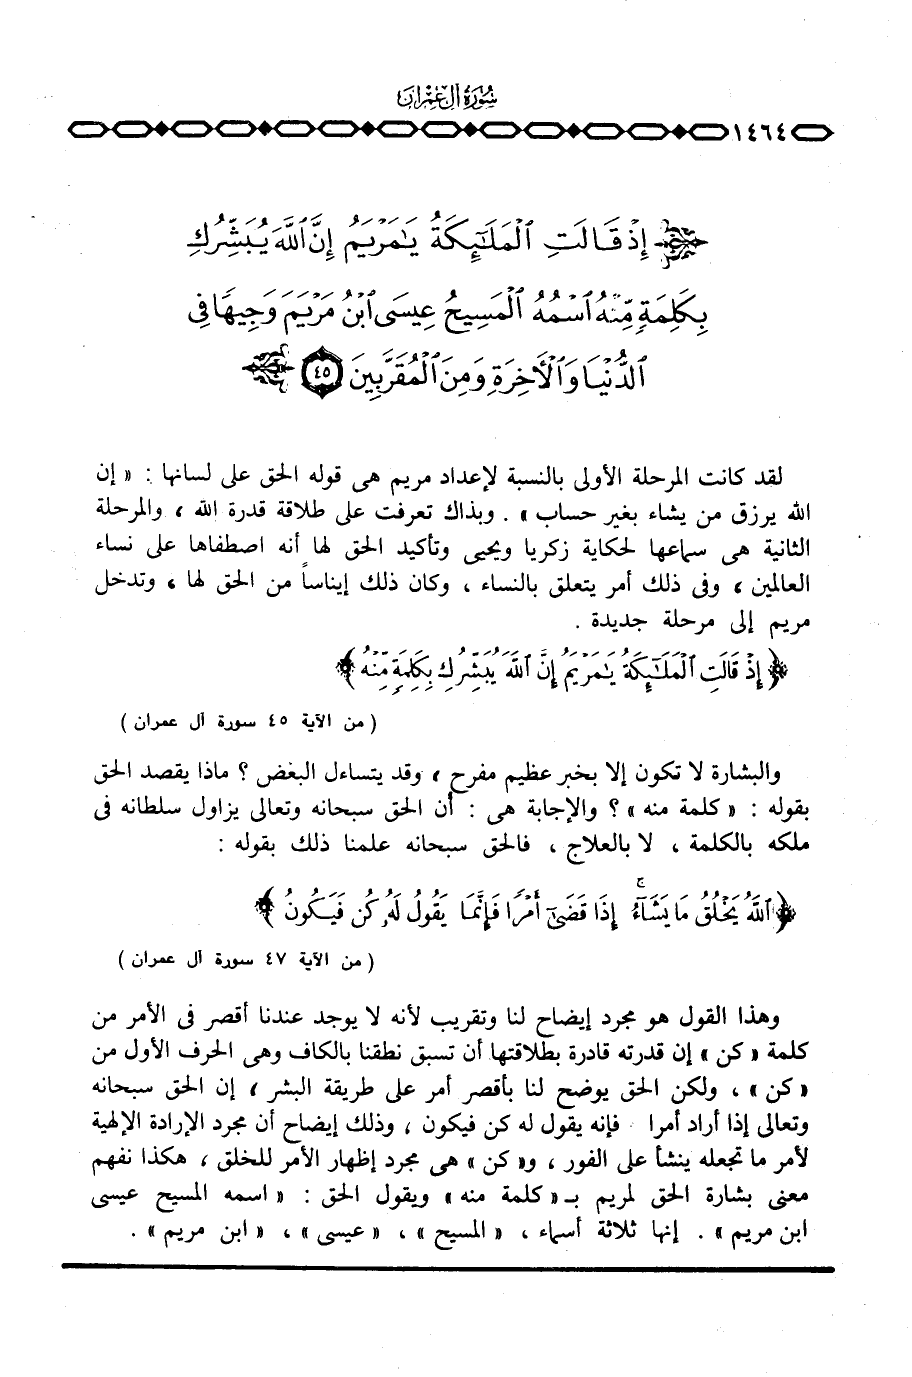 سورة آل عمران
١٤٦٤
إِذْ قَالَتِ ٱلْمَلَٰٓئِكَةُ يَٰمَرْيَمُ إِنَّ ٱللَّهَ يُبَشِّرُكِ
بِكَلِمَةٍ مِّنْهُ ٱسْمُهُ ٱلْمَسِيحُ عِيسَى ٱبْنُ مَرْيَمَ وَجِيهًا فِى
ٱلدُّنْيَا وَٱلْأَخِرَةِ وَمِنَ ٱلْمُقَرَّبِينَ ٤٥
لقد كانت المرحلة الأولى بالنسبة لإعداد مريم هى قوله الحق على لسانها : « إن
الله يرزق من يشاء بغير حساب » . وبذاك تعرفت على طلاقة قدرة الله ، والمرحلة
الثانية هى سماعها لحكاية زكريا ويحيى وتأكيد الحق لها أنه اصطفاها على نساء
العالمين ، وفى ذلك أمر يتعلق بالنساء ، وكان ذلك إيناساً من الحق لها ، وتدخل
مريم إلى مرحلة جديدة .
﴿ إِذْ قَالَتِ ٱلْمَلَٰٓئِكَةُ يَٰمَرْيَمُ إِنَّ ٱللَّهَ يُبَشِّرُكِ بِكَلِمَةٍ مِّنْهُ ﴾
( من الآية ٤٥ سورة آل عمران )
والبشارة لا تكون إلا بخبر عظيم مفرح ، وقد يتساءل البعض ؟ ماذا يقصد الحق
بقوله : « كلمة منه » ؟ والإجابة هى : أن الحق سبحانه وتعالى يزاول سلطانه فى
ملكه بالكلمة ، لا بالعلاج ، فالحق سبحانه علمنا ذلك بقوله :
﴿ ٱللَّهُ يَخْلُقُ مَا يَشَآءُ ۚ إِذَا قَضَىٰٓ أَمْرًا فَإِنَّمَا يَقُولُ لَهُۥ كُن فَيَكُونُ ﴾
( من الآية ٤٧ سورة آل عمران )
وهذا القول هو مجرد إيضاح لنا وتقريب لأنه لا يوجد عندنا أقصر فى الأمر من
كلمة « كن » إن قدرته قادرة بطلاقتها أن تسبق نطقنا بالكاف وهى الحرف الأول من
« كن » ، ولكن الحق يوضح لنا بأقصر أمر على طريقة البشر ، إن الحق سبحانه
وتعالى إذا أراد أمرا فإنه يقول له كن فيكون ، وذلك إيضاح أن مجرد الإرادة الإلهية
لأمر ما تجعله ينشأ على الفور ، و« كن » هى مجرد إظهار الأمر للخلق ، هكذا نفهم
معنى بشارة الحق لمريم بـ « كلمة منه » ويقول الحق : « اسمه المسيح عيسى
ابن مريم » . إنها ثلاثة أسماء ، « المسيح » ، « عيسى » ، « ابن مريم » .